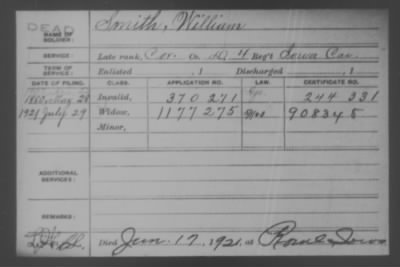 DEAD
NAME OF SOLDIER: Smith, William
SERVICE: Late rank, Cor. Co. D, 4 Reg't Iowa Cav.
TERM OF SERVICE: Enlisted , 1 Discharged , 1
DATE OF FILING. CLASS. APPLICATION NO. LAW. CERTIFICATE NO.
1880, May 28 Invalid, 370 271 244 331
1921 July 29 Widow, 1177 275 908345
Minor,
ADDITIONAL SERVICES:
REMARKS:
Died Jun. 17, 1921, at Rome Iowa